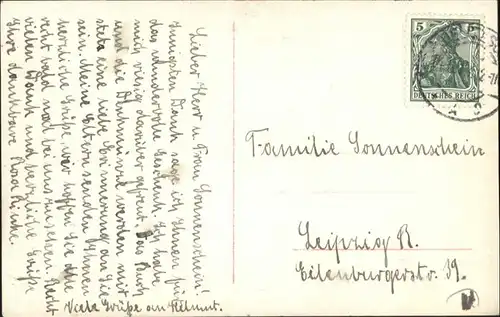 Lieber Herr u. Frau Sonnenschein!
Innigsten Dank sage ich Ihnen für
das wundervolle Geschenk. Ich habe
mich riesig darüber gefreut. Das Buch
und die werden mir
stets eine liebe Erinnerung an Sie
sein. Meine Eltern senden Ihnen
herzliche Grüße, wir hoffen Sie alle
recht bald mal bei uns zu sehen. Recht
vielen Dank und herzliche Grüße
Ihre dankbare Rosa
Viele Grüße an Helmut.
5 5
DEUTSCHES REICH
Familie Sonnenschein
Leipzig R.
Eilenburgerstr. 39.